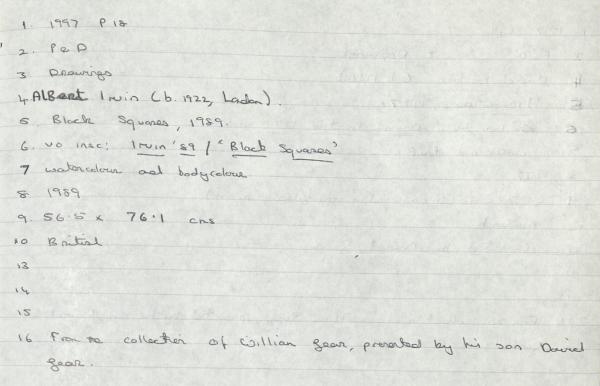 1. 1997 P 18
2. P & D
3 Drawings
4. Albert Irwin (b. 1922, London).
5 Black Squares, 1989.
6. vo insc: Irwin '89 / 'Black Squares'
7 watercolour and bodycolour
8. 1989
9. 56.5 x 76.1 cms
10 British
13
14
15
16 From the collection of William Gear, presented by his son David
Gear.